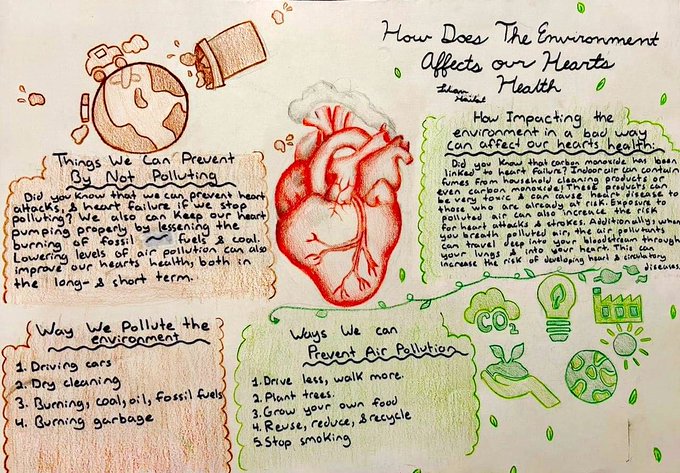 How Does The Environment
Affects our Hearts
Health
Things We Can Prevent
By Not Polluting
Did you know that we can prevent heart
attacks & heart failure if we stop
polluting? We also can keep our heart
pumping properly by lessening the
burning of fossil fuels & coal.
Lowering levels of air pollution can also
improve our hearts health, both in
the long- & short term.
How Impacting the
environment in a bad way
can affect our hearts health:
Did you know that carbon monoxide has been
linked to heart failure? Indoor air can contain
fumes from household cleaning products or
even carbon monoxide! These products can
be very toxic & can cause heart disease to
those who are already at risk. Exposure to
polluted air can also increase the risk
for heart attacks & strokes. Additionally, when
you breath polluted air, the air pollutants
can travel deep into your bloodstream through
your lungs & into your heart. This can
increase the risk of developing heart & circulatory
diseases.
Way We Pollute the
environment
1. Driving cars
2. Dry cleaning
3. Burning, coal, oil, fossil fuels
4. Burning garbage
Ways We can
Prevent Air Pollution
1. Drive less, walk more.
2. Plant trees.
3. Grow your own food
4. Reuse, reduce, & recycle
5. Stop smoking
CO2